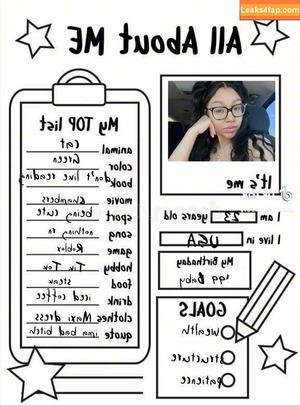 Leaks4fap.com
All About ME
My TOP list
animal cat
color Green
book don't like reading
movie chambers
sport being cute
song nothing rn
game Roblox
hobby Tik Tok
food steak
drink iced coffee
clothes Maxi dress
quote ima bad bitch
It's me
I am 23 years old
I live in USA
My Birthday
'99 Baby
GOALS
Wealth
Structure
Patience